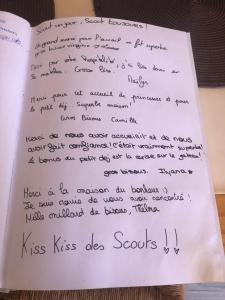 Scout un jour, Scout toujours!
Un grand merci pour l'accueil
gros bisous
Merci pour votre hospitalité, j'ai
Gros bisous
Merci pour cet accueil de princesses et pour
le petit déj. Superbe maison!
Gros Bisous Camille
Merci de nous avoir accueilli et de nous
avoir fait confiance! C'était vraiment superbe!
Le bonus du petit déj est la cerise sur le gâteau!
gros bisous. Ilyana
Merci à la maison du bonheur :)
Je suis ravie de vous avoir rencontré!
Mille milliard de bisous, Thelma
Kiss Kiss des Scouts !!